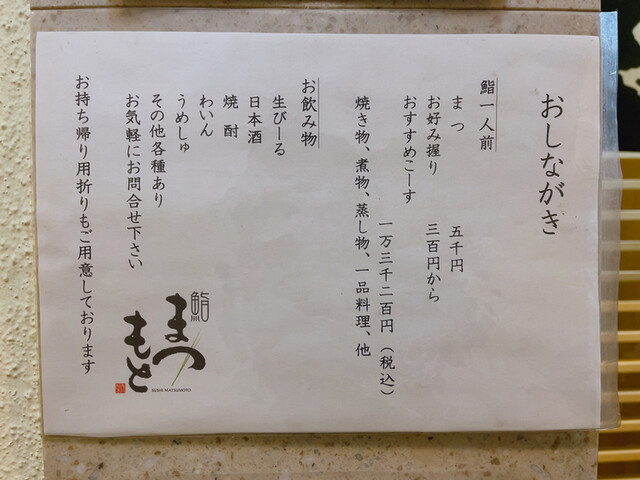 おしながき
鮨一人前
まつ 五千円
お好み握り 三百円から
おすすめこーす
一万三千二百円(税込)
焼き物、煮物、蒸し物、一品料理、他
お飲み物
生びーる
日本酒
焼酎
わいん
うめしゅ
その他各種あり
お気軽にお問合せ下さい
お持ち帰り用折りもご用意しております
鮨
まつ
もと
SUSHI MATSUMOTO